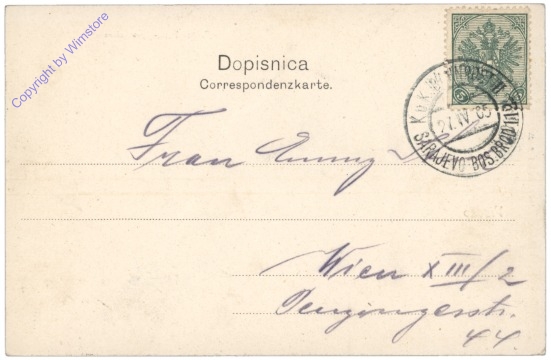 Copyright by Winstore
Dopisnica
Correspondenzkarte.
K.u.K.
27.IV 05
SARAJEVO-BOS.BROD
5
Frau
Wien XIII/2
Penzingerstr.
44.